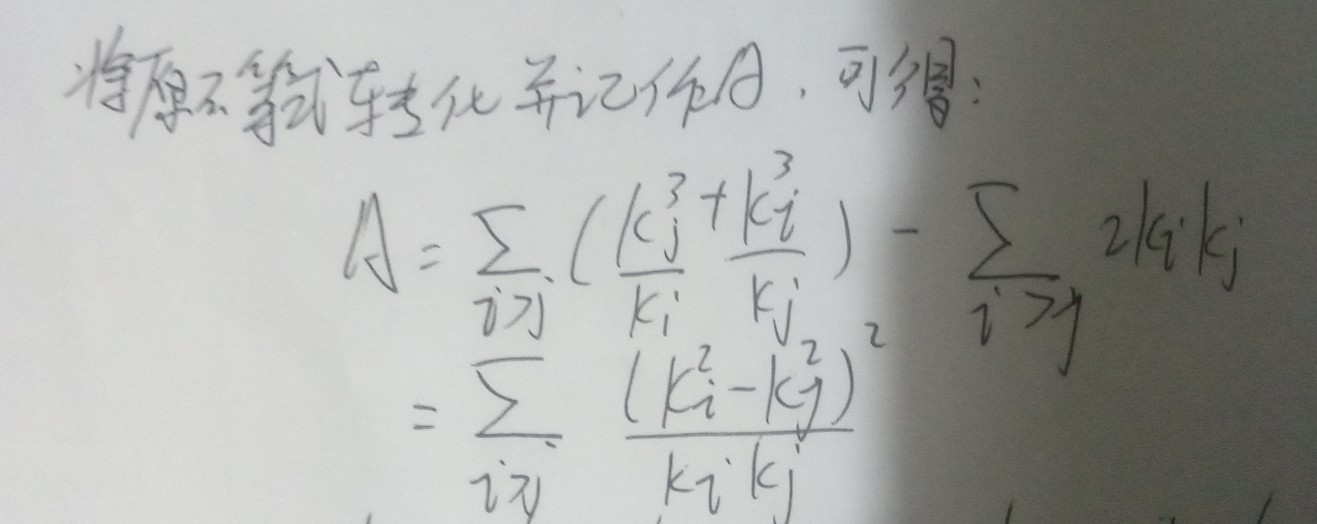 将原不等式转化并记作A，可得：
A = ∑_{i>j} (k_j^3/k_i + k_i^3/k_j) - ∑_{i>j} 2k_ik_j
= ∑_{i>j} (k_i^2-k_j^2)^2/(k_ik_j)